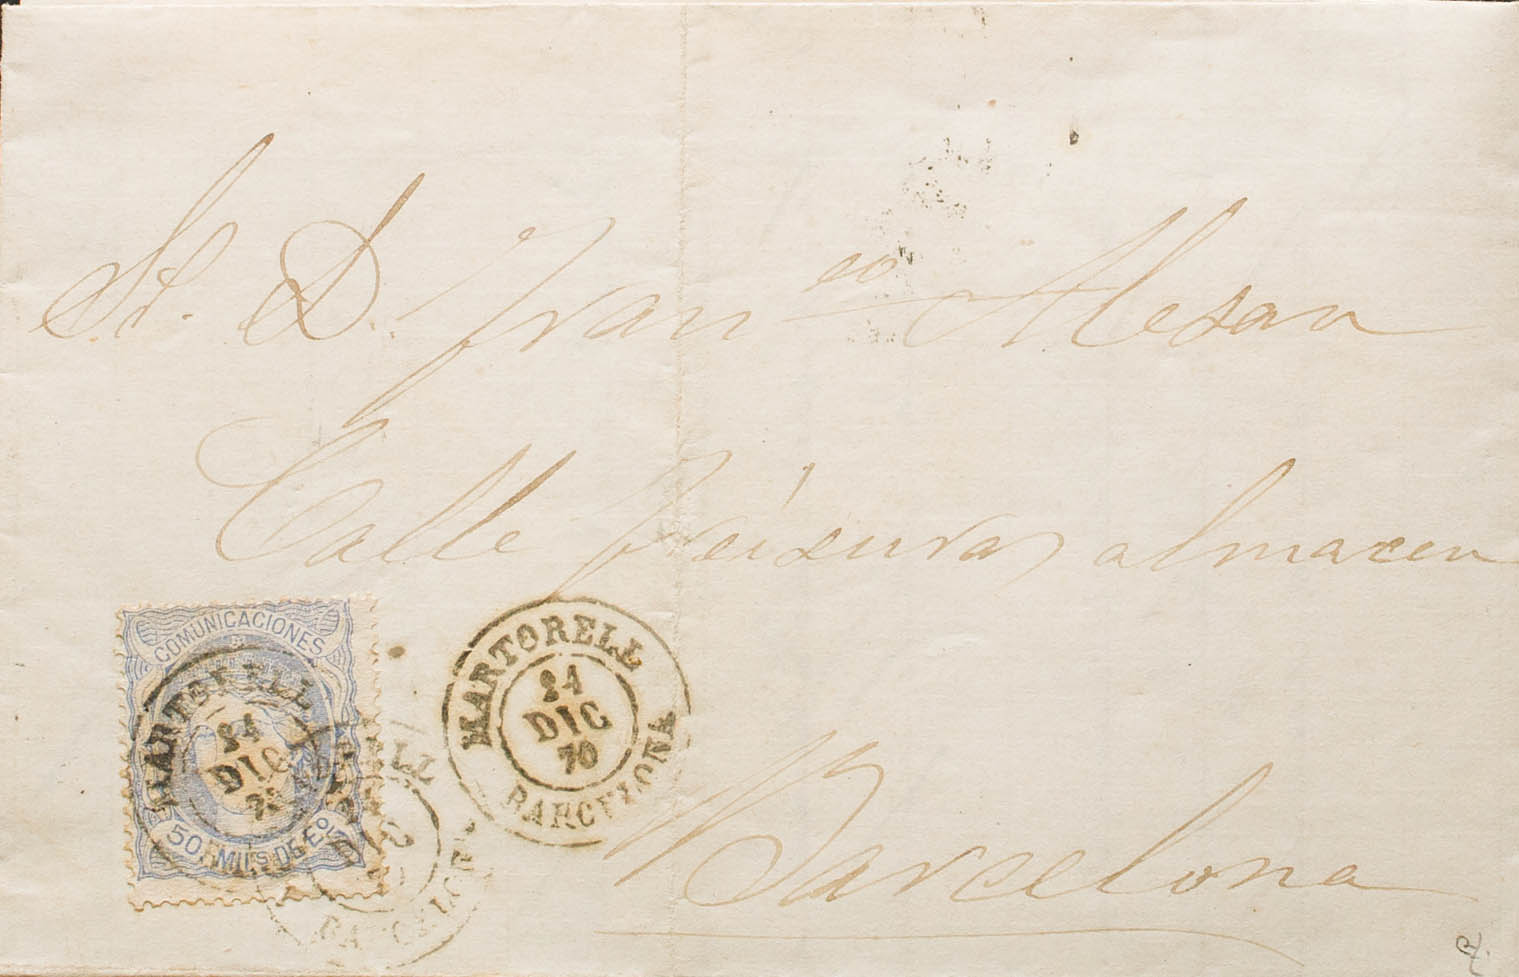 Sr. D. Fran.co Alesan
Calle almacen
COMUNICACIONES
50 MILS DE Eo
MARTORELL
24
DIC
70
BARCELONA
MARTORELL
24
DIC
BARCELONA
Barcelona